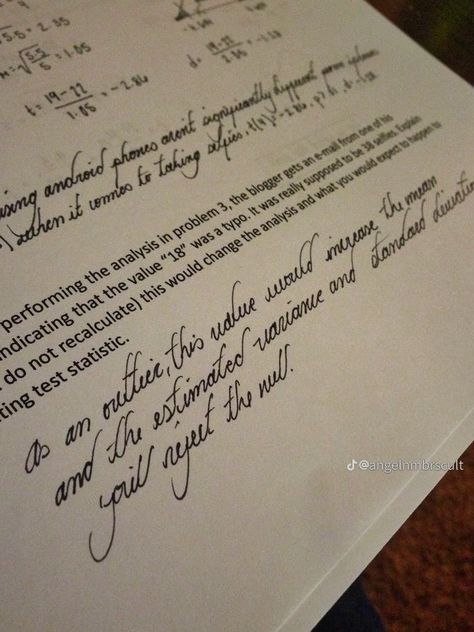 5.5 = 2.35
√5.5/5 = 1.05
t = 19-22/1.05 = -2.86
d = 19-22/2.35 = -1.28
using android phones aren't significantly different from iphone
when it comes to taking selfies, t(4) = -2.86, p
performing the analysis in problem 3, the blogger gets an e-mail from one of his
indicating that the value "18" was a typo. It was really supposed to be 38 selfies. Explain
do not recalculate) this would change the analysis and what you would expect to happen to
ting test statistic.
As an outlier, this value would increase the mean
and the estimated variance and standard deviation
you'll reject the null.
@angelnmbrscult